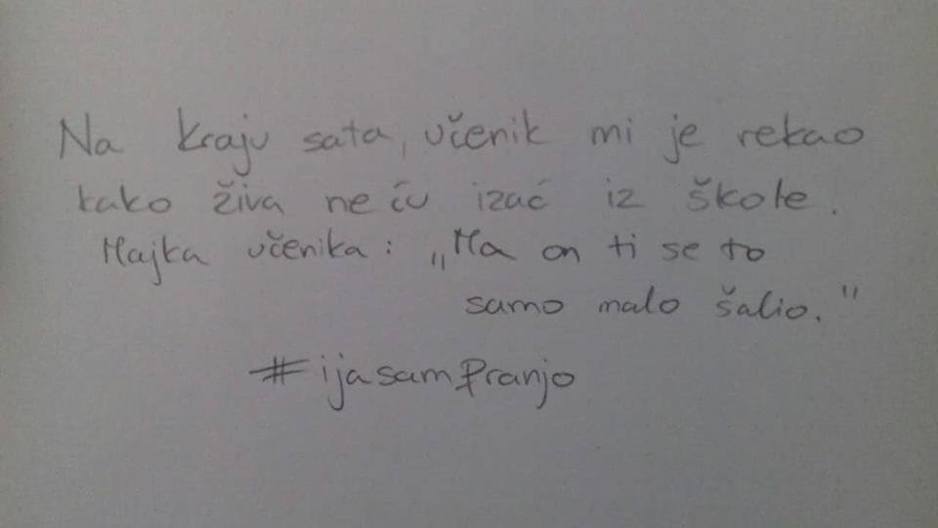 Na kraju sata, učenik mi je rekao
kako živa neću izać iz škole.
Majka učenika: „Ma on ti se to
samo malo šalio."
#ijasamPranjo